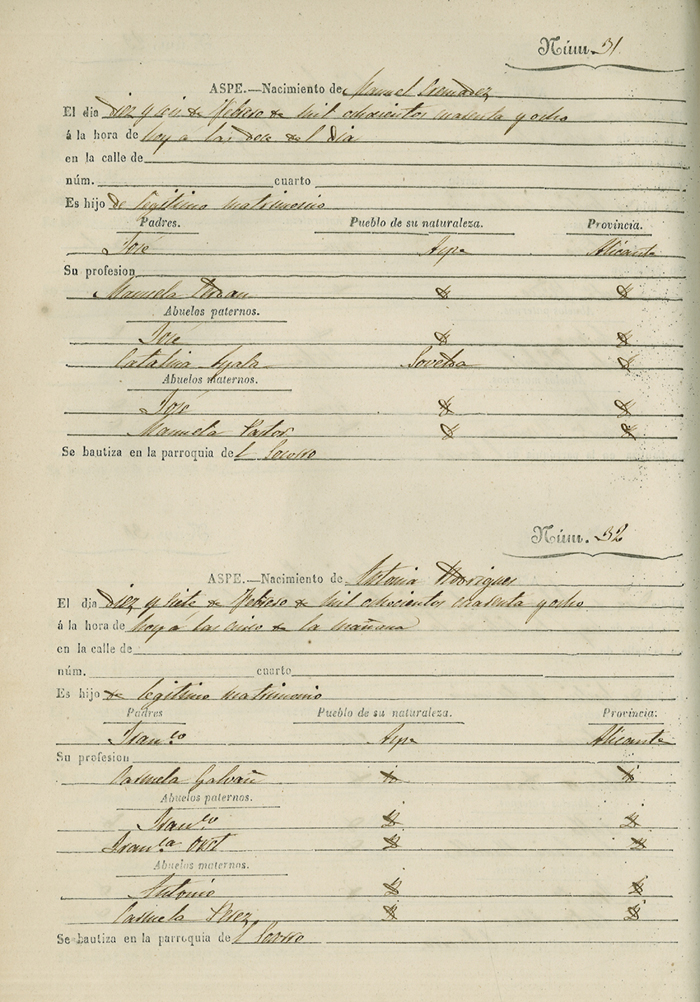 Núm. 31
ASPE.—Nacimiento de Manuel
El dia diez y seis de Febrero de mil ochocientos cuarenta y ocho
á la hora de hoy a las doce del dia
en la calle de
núm. cuarto
Es hijo de legitimo matrimonio
Padres. Pueblo de su naturaleza. Provincia.
José Aspe Alicante
Su profesion
Manuela
Abuelos paternos.
José
Catalina Ayala
Abuelos maternos.
José
Manuela Pastor
Se bautiza en la parroquia del Socorro
Núm. 32
ASPE.—Nacimiento de Antonia Rodrigues
El dia diez y siete de Febrero de mil ochocientos cuarenta y ocho
á la hora de hoy á las cinco de la mañana
en la calle de
núm. cuarto
Es hijo de legitimo matrimonio
Padres Pueblo de su naturaleza. Provincia.
Franco Aspe Alicante
Su profesion
Carmela Galvañ
Abuelos paternos.
Franco
Franca
Abuelos maternos.
Antonio
Carmela Perez
Se bautiza en la parroquia del Socorro